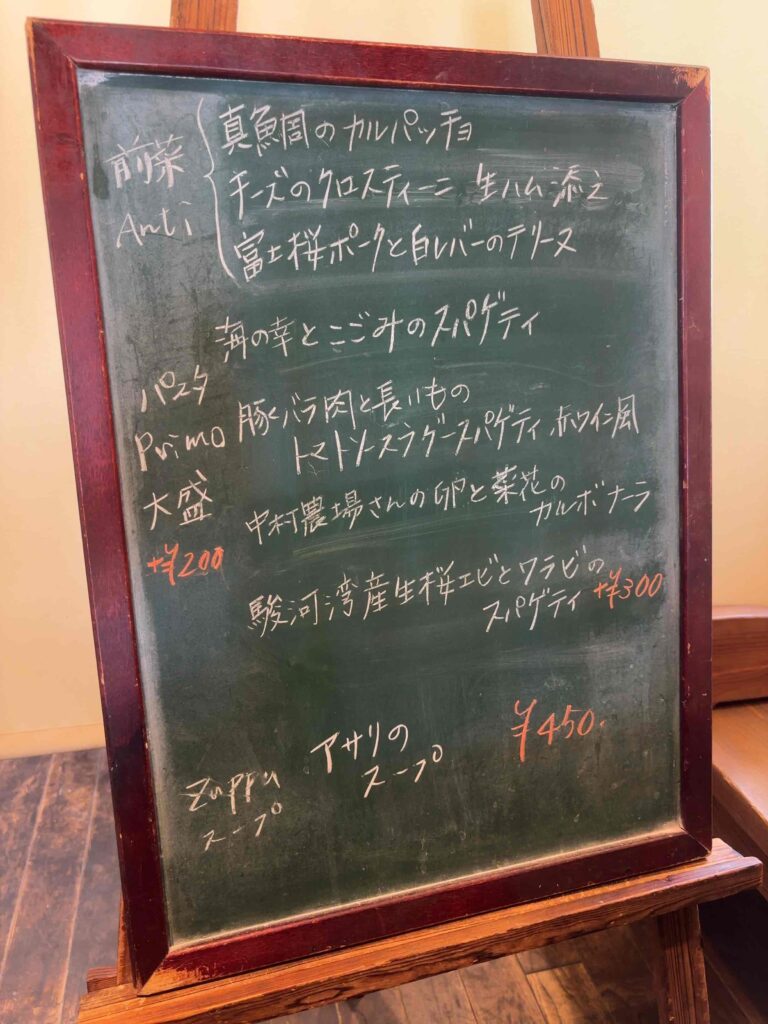 前菜
Anti
真鯛のカルパッチョ
チーズのクロスティーニ 生ハム添え
富士桜ポークと白レバーのテリーヌ
パスタ
Primo
大盛
+¥200
海の幸とこごみのスパゲティ
豚バラ肉と長いもの
トマトソースラグースパゲティ 赤ワイン風
中村農場さんの卵と菜花の
カルボナーラ
駿河湾産生桜エビとワラビの
スパゲティ +¥300
Zuppa
スープ
アサリの
スープ
¥450.